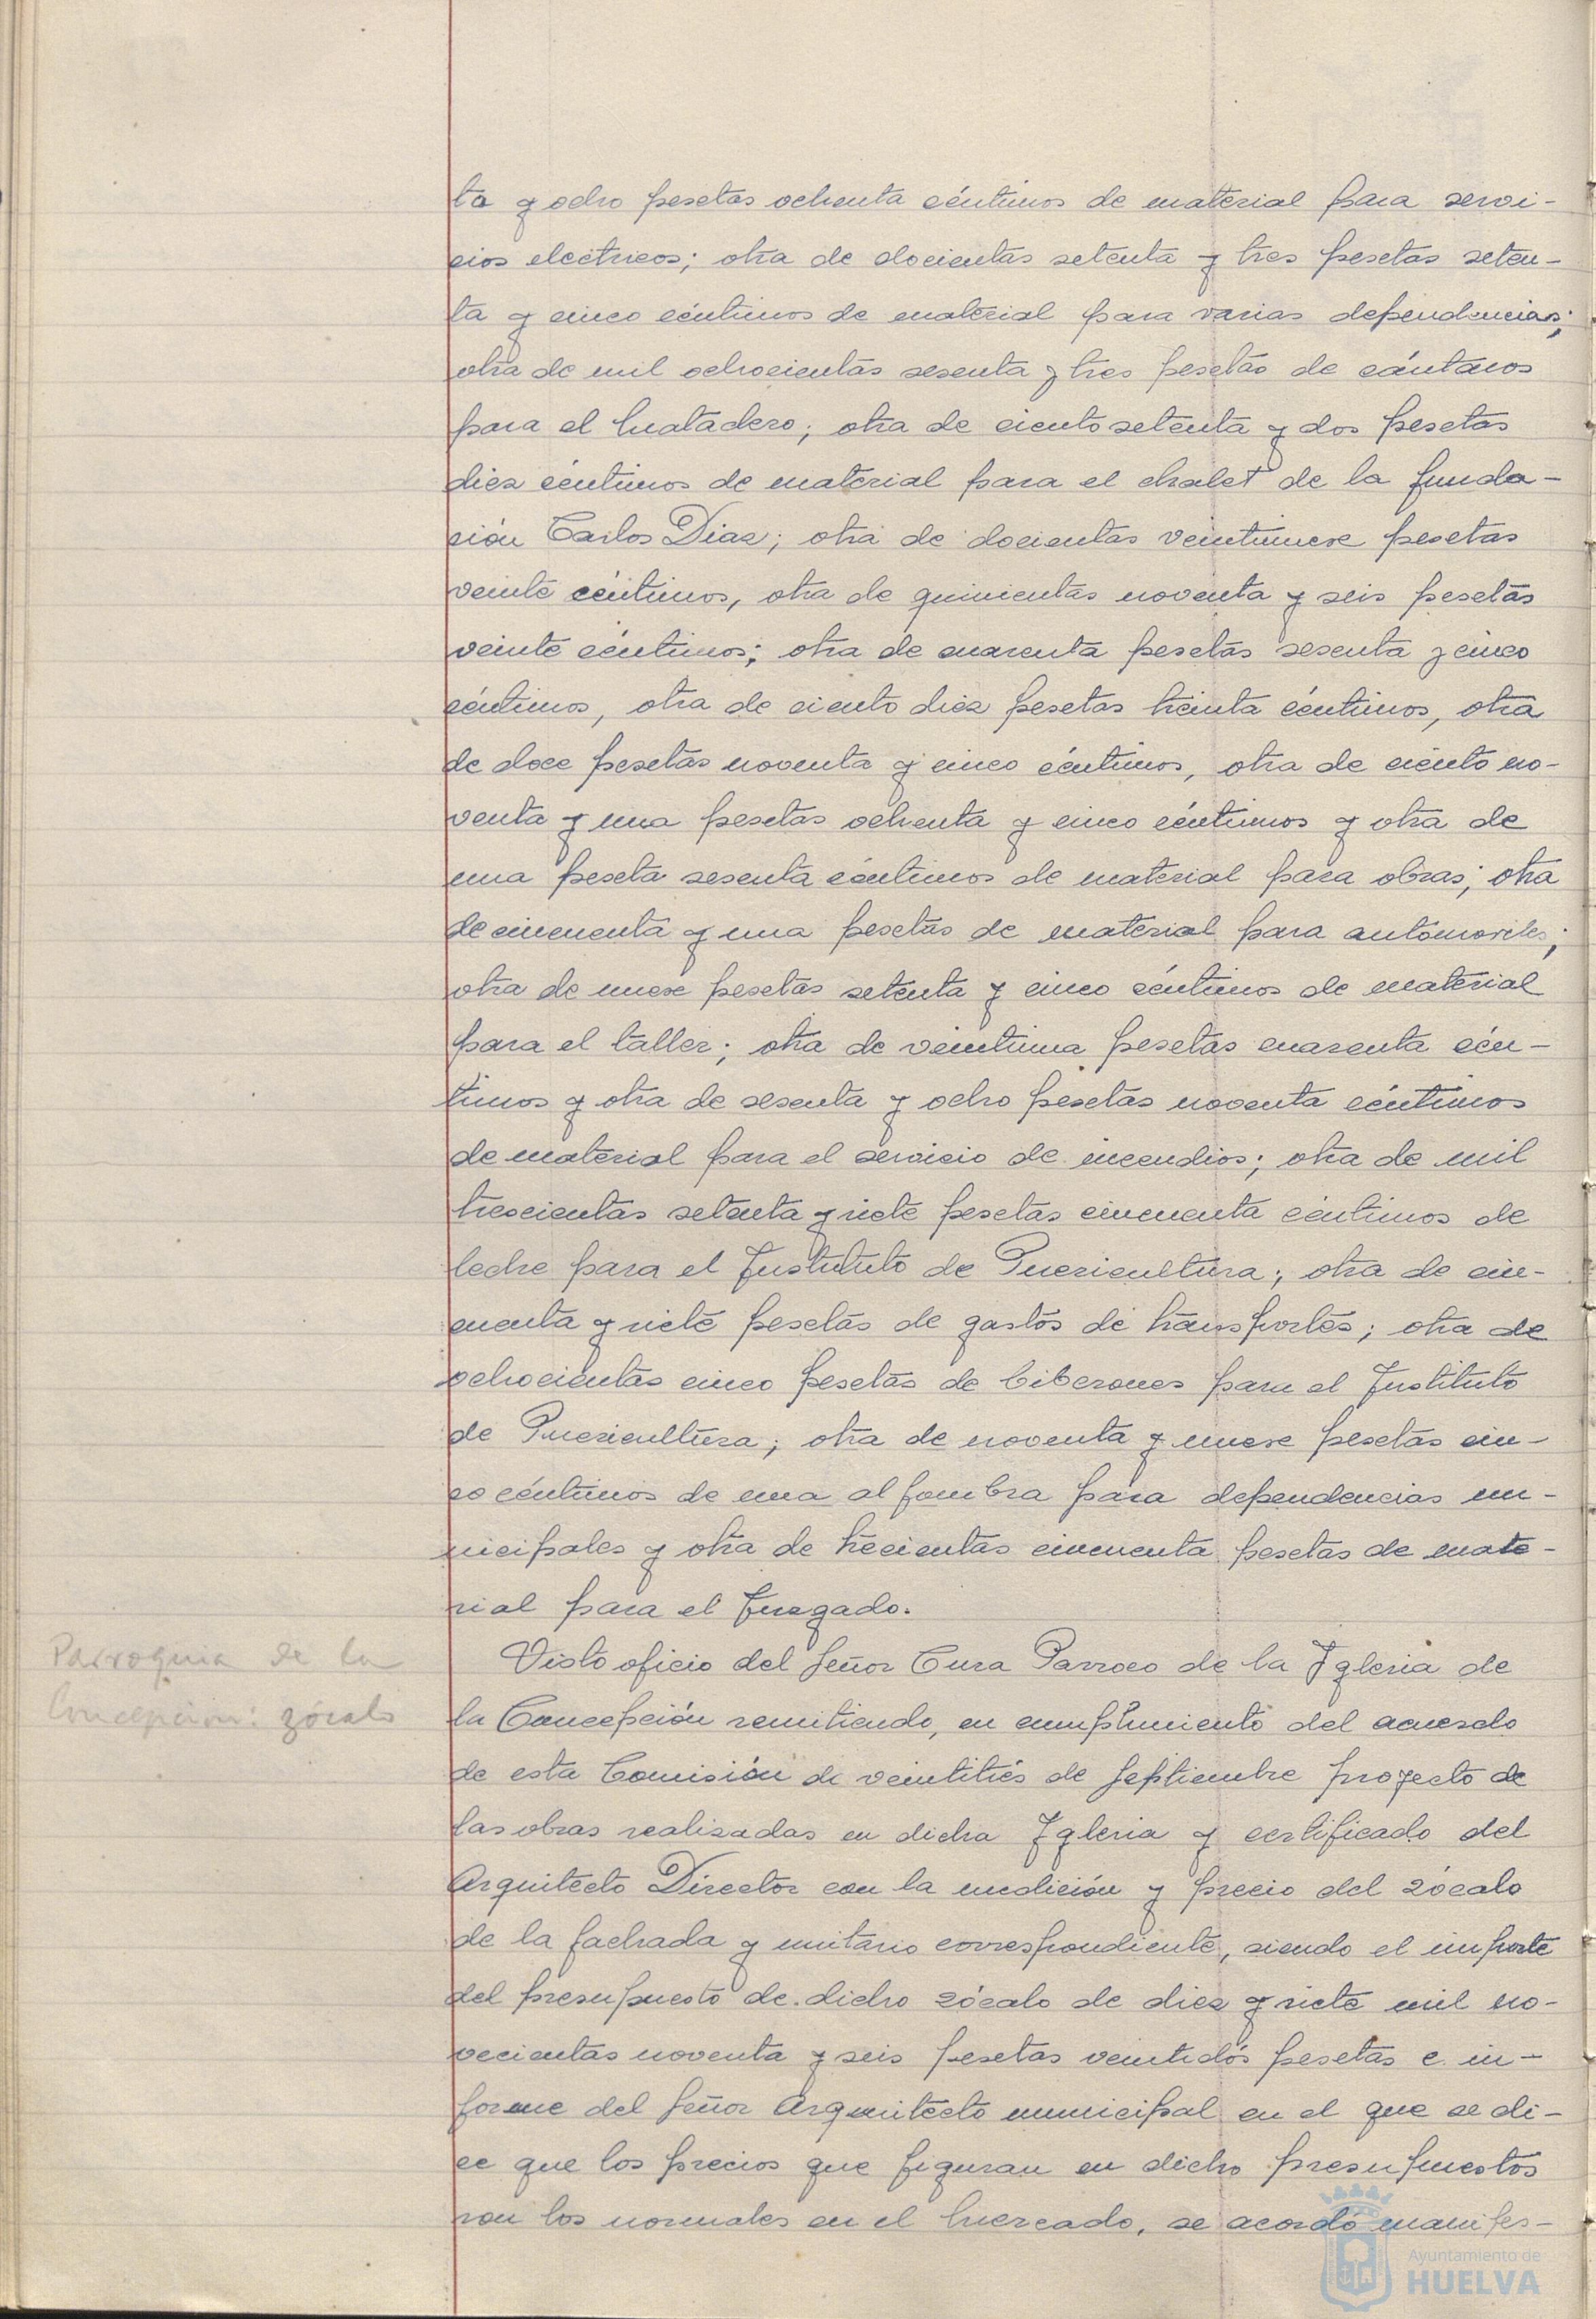 ta y ocho pesetas ochenta céntimos de material para servi-
cios electricos; otra de docientas setenta y tres pesetas seten-
ta y cinco céntimos de material para varias dependencias;
otra de mil ochocientas sesenta y tres pesetas de cántaros
para el Matadero; otra de ciento setenta y dos pesetas
diez céntimos de material para el chalet de la funda-
ción Carlos Diaz; otra de docientas veintinueve pesetas
veinte céntimos, otra de quinientas noventa y seis pesetas
veinte céntimos; otra de cuarenta pesetas sesenta y cinco
céntimos, otra de ciento diez pesetas treinta céntimos, otra
de doce pesetas noventa y cinco céntimos, otra de ciento no-
venta y una pesetas ochenta y cinco céntimos y otra de
una peseta sesenta céntimos de material para obras; otra
de cincuenta y una pesetas de material para automoviles;
otra de nueve pesetas setenta y cinco céntimos de material
para el taller; otra de veintiuna pesetas cuarenta cén-
timos y otra de sesenta y ocho pesetas noventa céntimos
de material para el servicio de incendios; otra de mil
trescientas setenta y siete pesetas cincuenta céntimos de
leche para el Instituto de Puericultura; otra de cin-
cuenta y siete pesetas de gastos de transportes; otra de
ochocientas cinco pesetas de biberones para el Instituto
de Puericultura; otra de noventa y nueve pesetas cin-
co céntimos de una alfombra para dependencias mu-
nicipales y otra de trecientas cincuenta pesetas de mate-
rial para el Juzgado.
Parroquia de la
Concepcion: zócalo
Visto oficio del Señor Cura Parroco de la Iglesia de
la Concepción remitiendo, en cumplimiento del acuerdo
de esta Comisión de veintitrés de Septiembre proyecto de
las obras realizadas en dicha Iglesia y certificado del
Arquitecto Director con la medición y precio del zócalo
de la fachada y unitario correspondiente, siendo el importe
del presupuesto de dicho zócalo de diez y siete mil no-
vecientas noventa y seis pesetas veintidós pesetas e in-
forme del Señor Arquitecto municipal en el que se di-
ce que los precios que figuran en dicho presupuestos
son los normales en el Mercado, se acordó manifes-
Ayuntamiento de
HUELVA